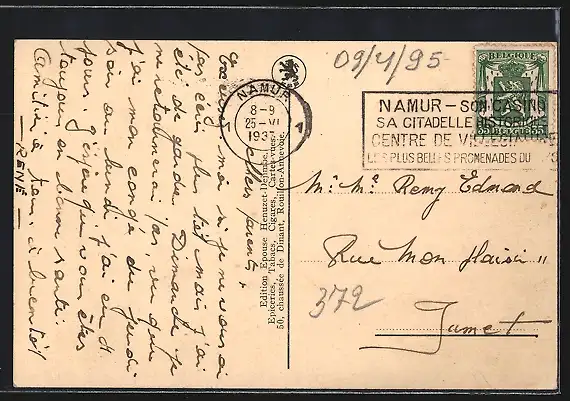 Chers parents,
Excusez moi si je ne vous ai
pas écris plus tôt mais j'ai
été de garde Dimanche je
ne retournerai pas, vu que
j'ai mon congé du jeudi
soir au lundi j'ai eu 4
jours. j'espère que vous êtes
toujours en bonne santé.
Amitiés à tous, à bientôt
RENÉ
Edition Epouse Henuzet-Dejaifve,
Epiceries, Tabacs, Cigares, Cartes-vues,
50, chaussée de Dinant, Rouillon-Annevoie.
09/4/95
NAMUR
8-9
25-VI
193
1 1
BELGIQUE
35 BELGIE 35
NAMUR - SON CASINO
SA CITADELLE HISTORIQUE
CENTRE DE VILLEGIATURE
LES PLUS BELLES PROMENADES DU
Mr Me Remy Edmond
Rue Mon Plaisir
Jamet
372